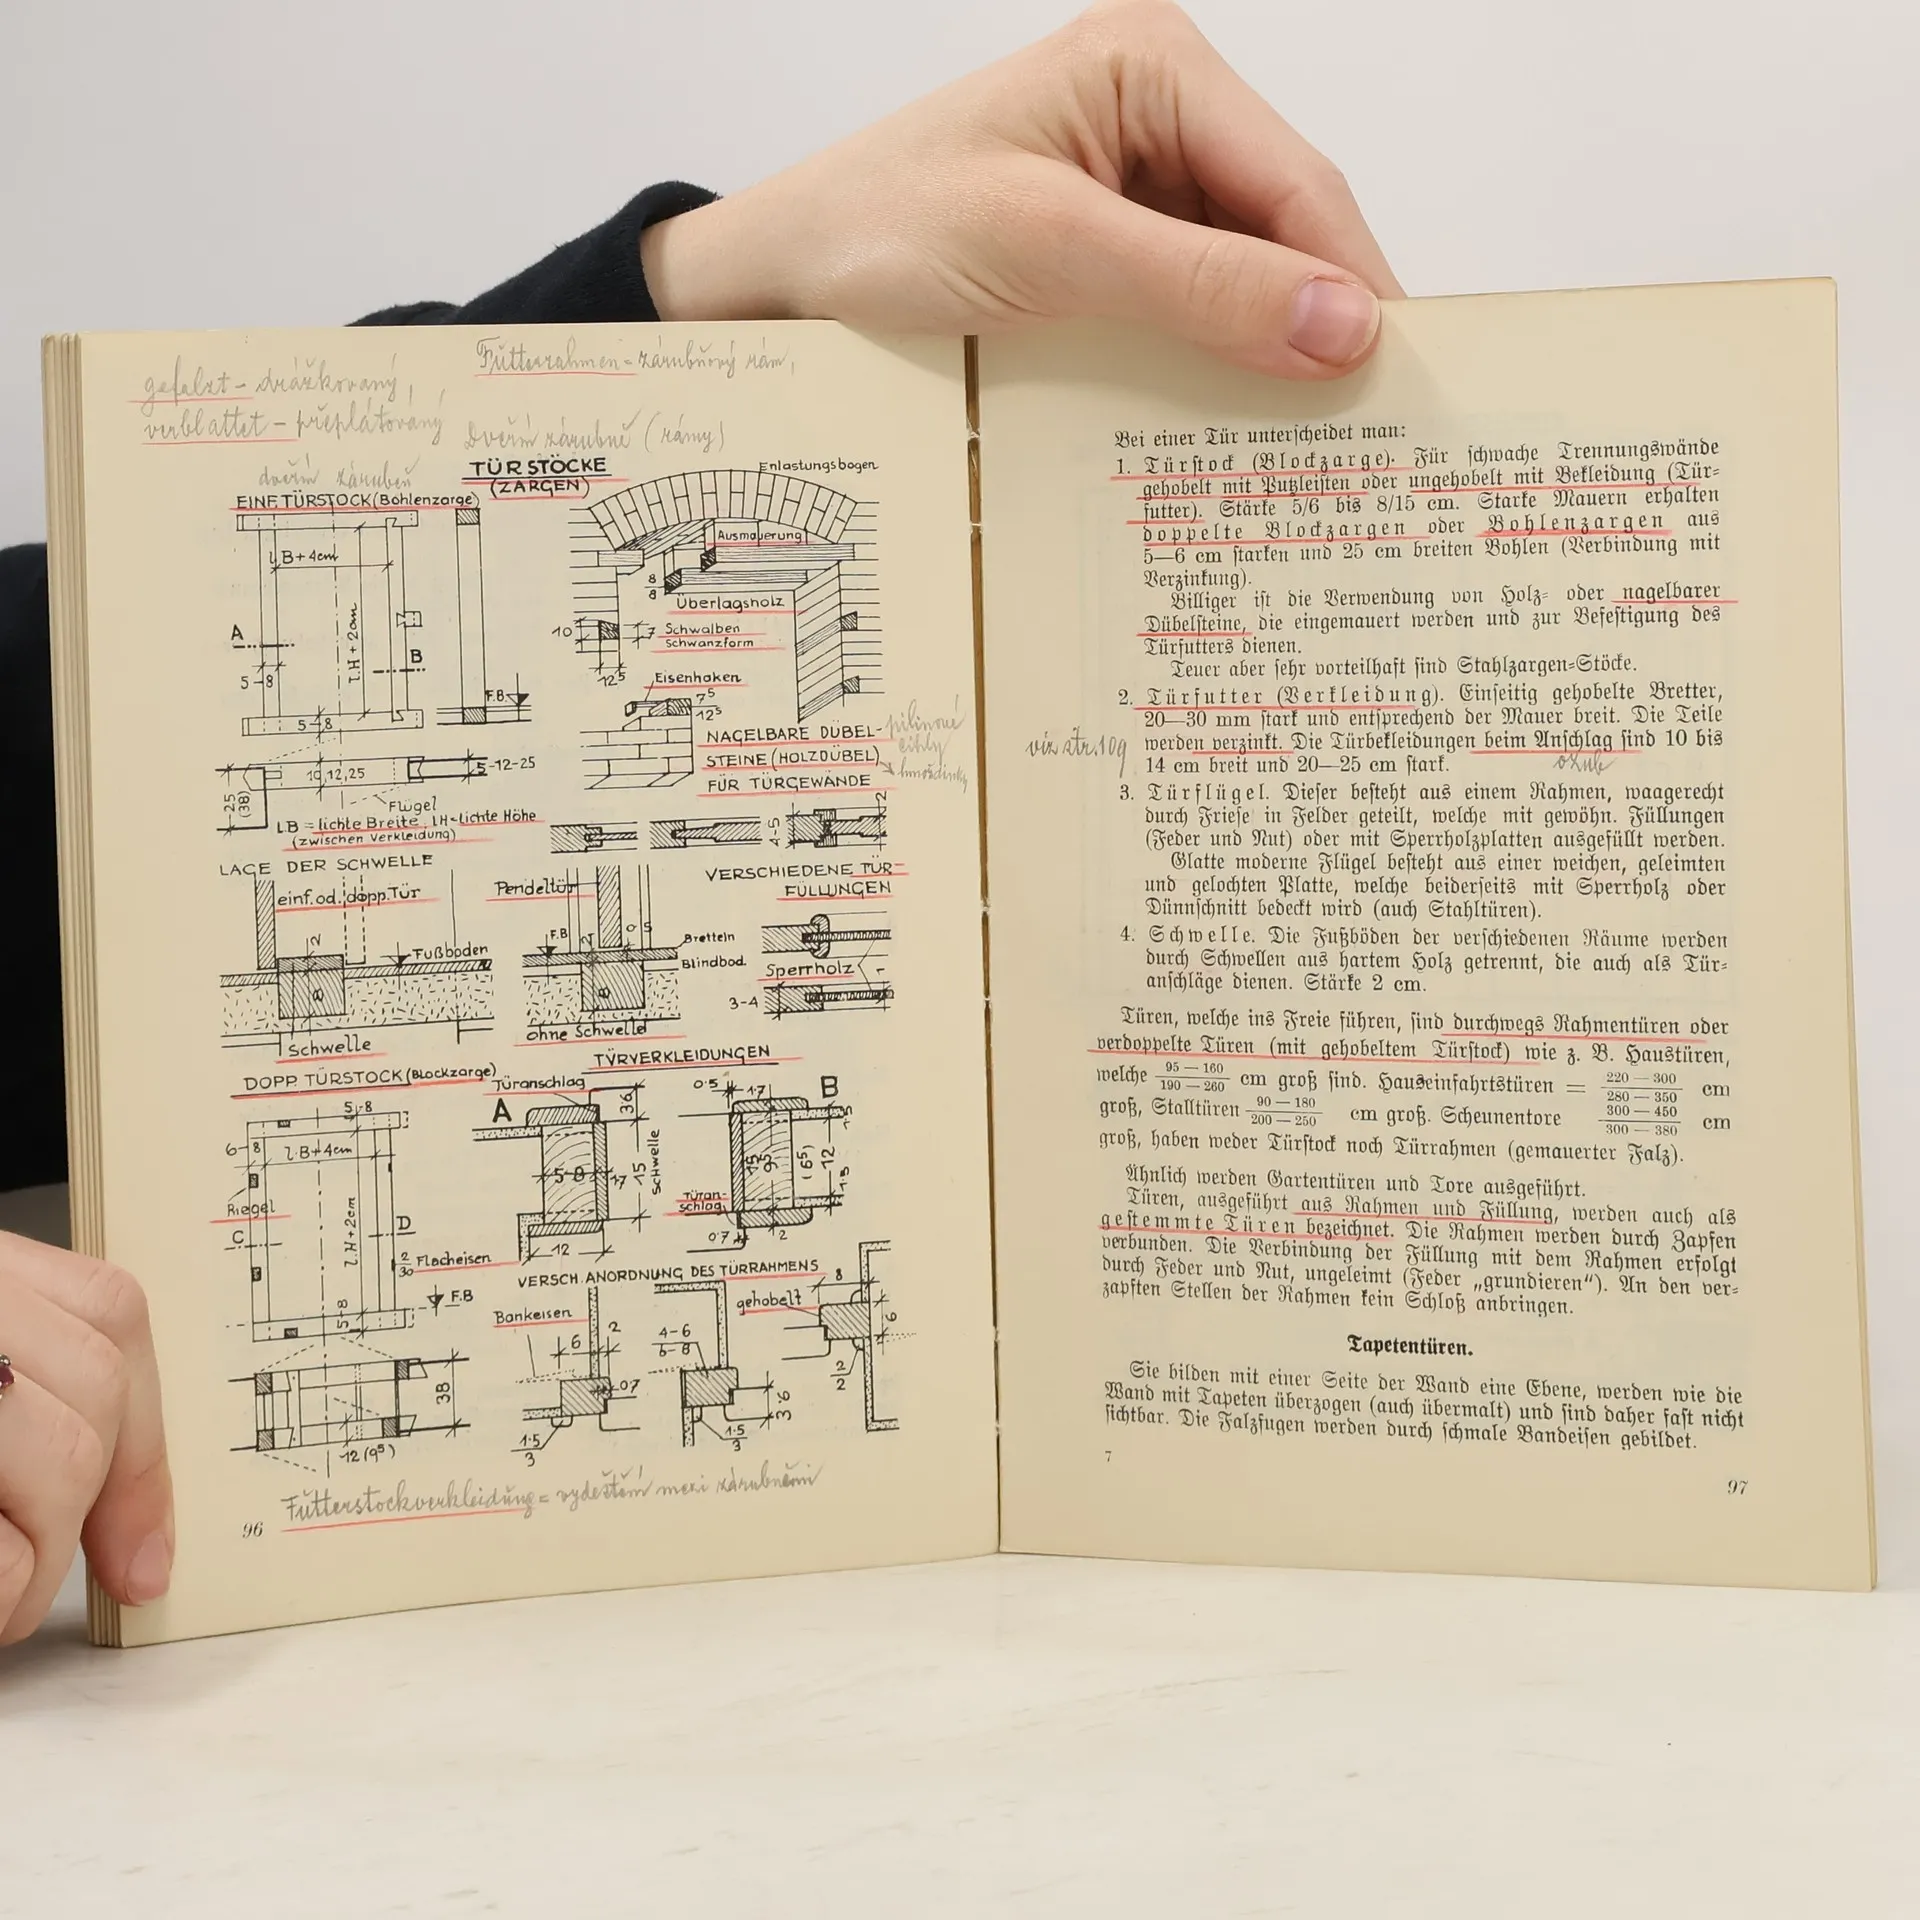 Futterrahmen = zárubňový rám,
gefalzt - drážkovaný,
verblattet - přeplátovaný
Dveřní zárubně (rámy)
dveřní zárubeň
TÜRSTÖCKE
(ZARGEN)
Enlastungsbogen
EINF. TÜRSTOCK (Bohlenzarge)
Ausmauerung
l.B+4cm
8
8
Überlagsholz
l.H+2cm
A
B
10
7
Schwalben
Schwanzform
5-8
12⁵
Eisenhaken
7⁵
12⁵
F.B.
5-8
NAGELBARE DÜBEL-
STEINE (HOLZDÜBEL)
FÜR TÜRGEWÄNDE
pilinové
cihly
hmoždinky
10,12,25
5-12-25
25
(38)
Flügel
LB = lichte Breite, LH = lichte Höhe
(zwischen Verkleidung)
4-5
2
LAGE DER SCHWELLE
einf. od. dopp. Tür
Pendeltür
VERSCHIEDENE TÜR-
FÜLLUNGEN
2
Fußboden
F.B
Bretteln
Blindbod.
Sperrholz
8
8
3-4
1
Schwelle
ohne Schwelle
TÜRVERKLEIDUNGEN
DOPP. TÜRSTOCK (Blockzarge)
Türanschlag
A
3·6
0·5
1·7
B
5-8
6-8
l.B+4cm
5-8
1·7
15
Schwelle
12
Riegel
Türan-
schlag
C
D
l.H+2cm
12
0·7
2
2
30
Flacheisen
VERSCH. ANORDNUNG DES TÜRRAHMENS
F.B
Bankeisen
gehobelt
8
5-8
6
2
4-6
6-8
6
0·7
2
2
38
3·6
1·5
3
1·5
3
12 (9⁵)
Futterstockverkleidung = vydeštění mezi zárubněmi
96
Bei einer Tür unterscheidet man:
1. Türstock (Blockzarge). Für schwache Trennungswände
gehobelt mit Putzleisten oder ungehobelt mit Bekleidung (Tür-
futter). Stärke 5/6 bis 8/15 cm. Starke Mauern erhalten
doppelte Blockzargen oder Bohlenzargen aus
5—6 cm starken und 25 cm breiten Bohlen (Verbindung mit
Verzinkung).
Billiger ist die Verwendung von Holz- oder nagelbarer
Dübelsteine, die eingemauert werden und zur Befestigung des
Türfutters dienen.
Teuer aber sehr vorteilhaft sind Stahlzargen-Stöcke.
2. Türfutter (Verkleidung). Einseitig gehobelte Bretter,
20—30 mm stark und entsprechend der Mauer breit. Die Teile
viz str. 109
werden verzinkt. Die Türbekleidungen beim Anschlag sind 10 bis
14 cm breit und 20—25 cm stark.
ozub
3. Türflügel. Dieser besteht aus einem Rahmen, waagerecht
durch Friese in Felder geteilt, welche mit gewöhn. Füllungen
(Feder und Nut) oder mit Sperrholzplatten ausgefüllt werden.
Glatte moderne Flügel besteht aus einer weichen, geleimten
und gelochten Platte, welche beiderseits mit Sperrholz oder
Dünnschnitt bedeckt wird (auch Stahltüren).
4. Schwelle. Die Fußböden der verschiedenen Räume werden
durch Schwellen aus hartem Holz getrennt, die auch als Tür-
anschläge dienen. Stärke 2 cm.
Türen, welche ins Freie führen, sind durchwegs Rahmentüren oder
verdoppelte Türen (mit gehobeltem Türstock) wie z. B. Haustüren,
welche 95 — 160 / 190 — 260 cm groß sind. Hauseinfahrtstüren = 220 — 300 / 280 — 350 cm
groß, Stalltüren 90 — 180 / 200 — 250 cm groß. Scheunentore 300 — 450 / 300 — 380 cm
groß, haben weder Türstock noch Türrahmen (gemauerter Falz).
Ähnlich werden Gartentüren und Tore ausgeführt.
Türen, ausgeführt aus Rahmen und Füllung, werden auch als
gestemmte Türen bezeichnet. Die Rahmen werden durch Zapfen
verbunden. Die Verbindung der Füllung mit dem Rahmen erfolgt
durch Feder und Nut, ungeleimt (Feder „grundieren“). An den ver-
zapften Stellen der Rahmen kein Schloß anbringen.
Tapetentüren.
Sie bilden mit einer Seite der Wand eine Ebene, werden wie die
Wand mit Tapeten überzogen (auch übermalt) und sind daher fast nicht
sichtbar. Die Falzfugen werden durch schmale Bandeisen gebildet.
7
97